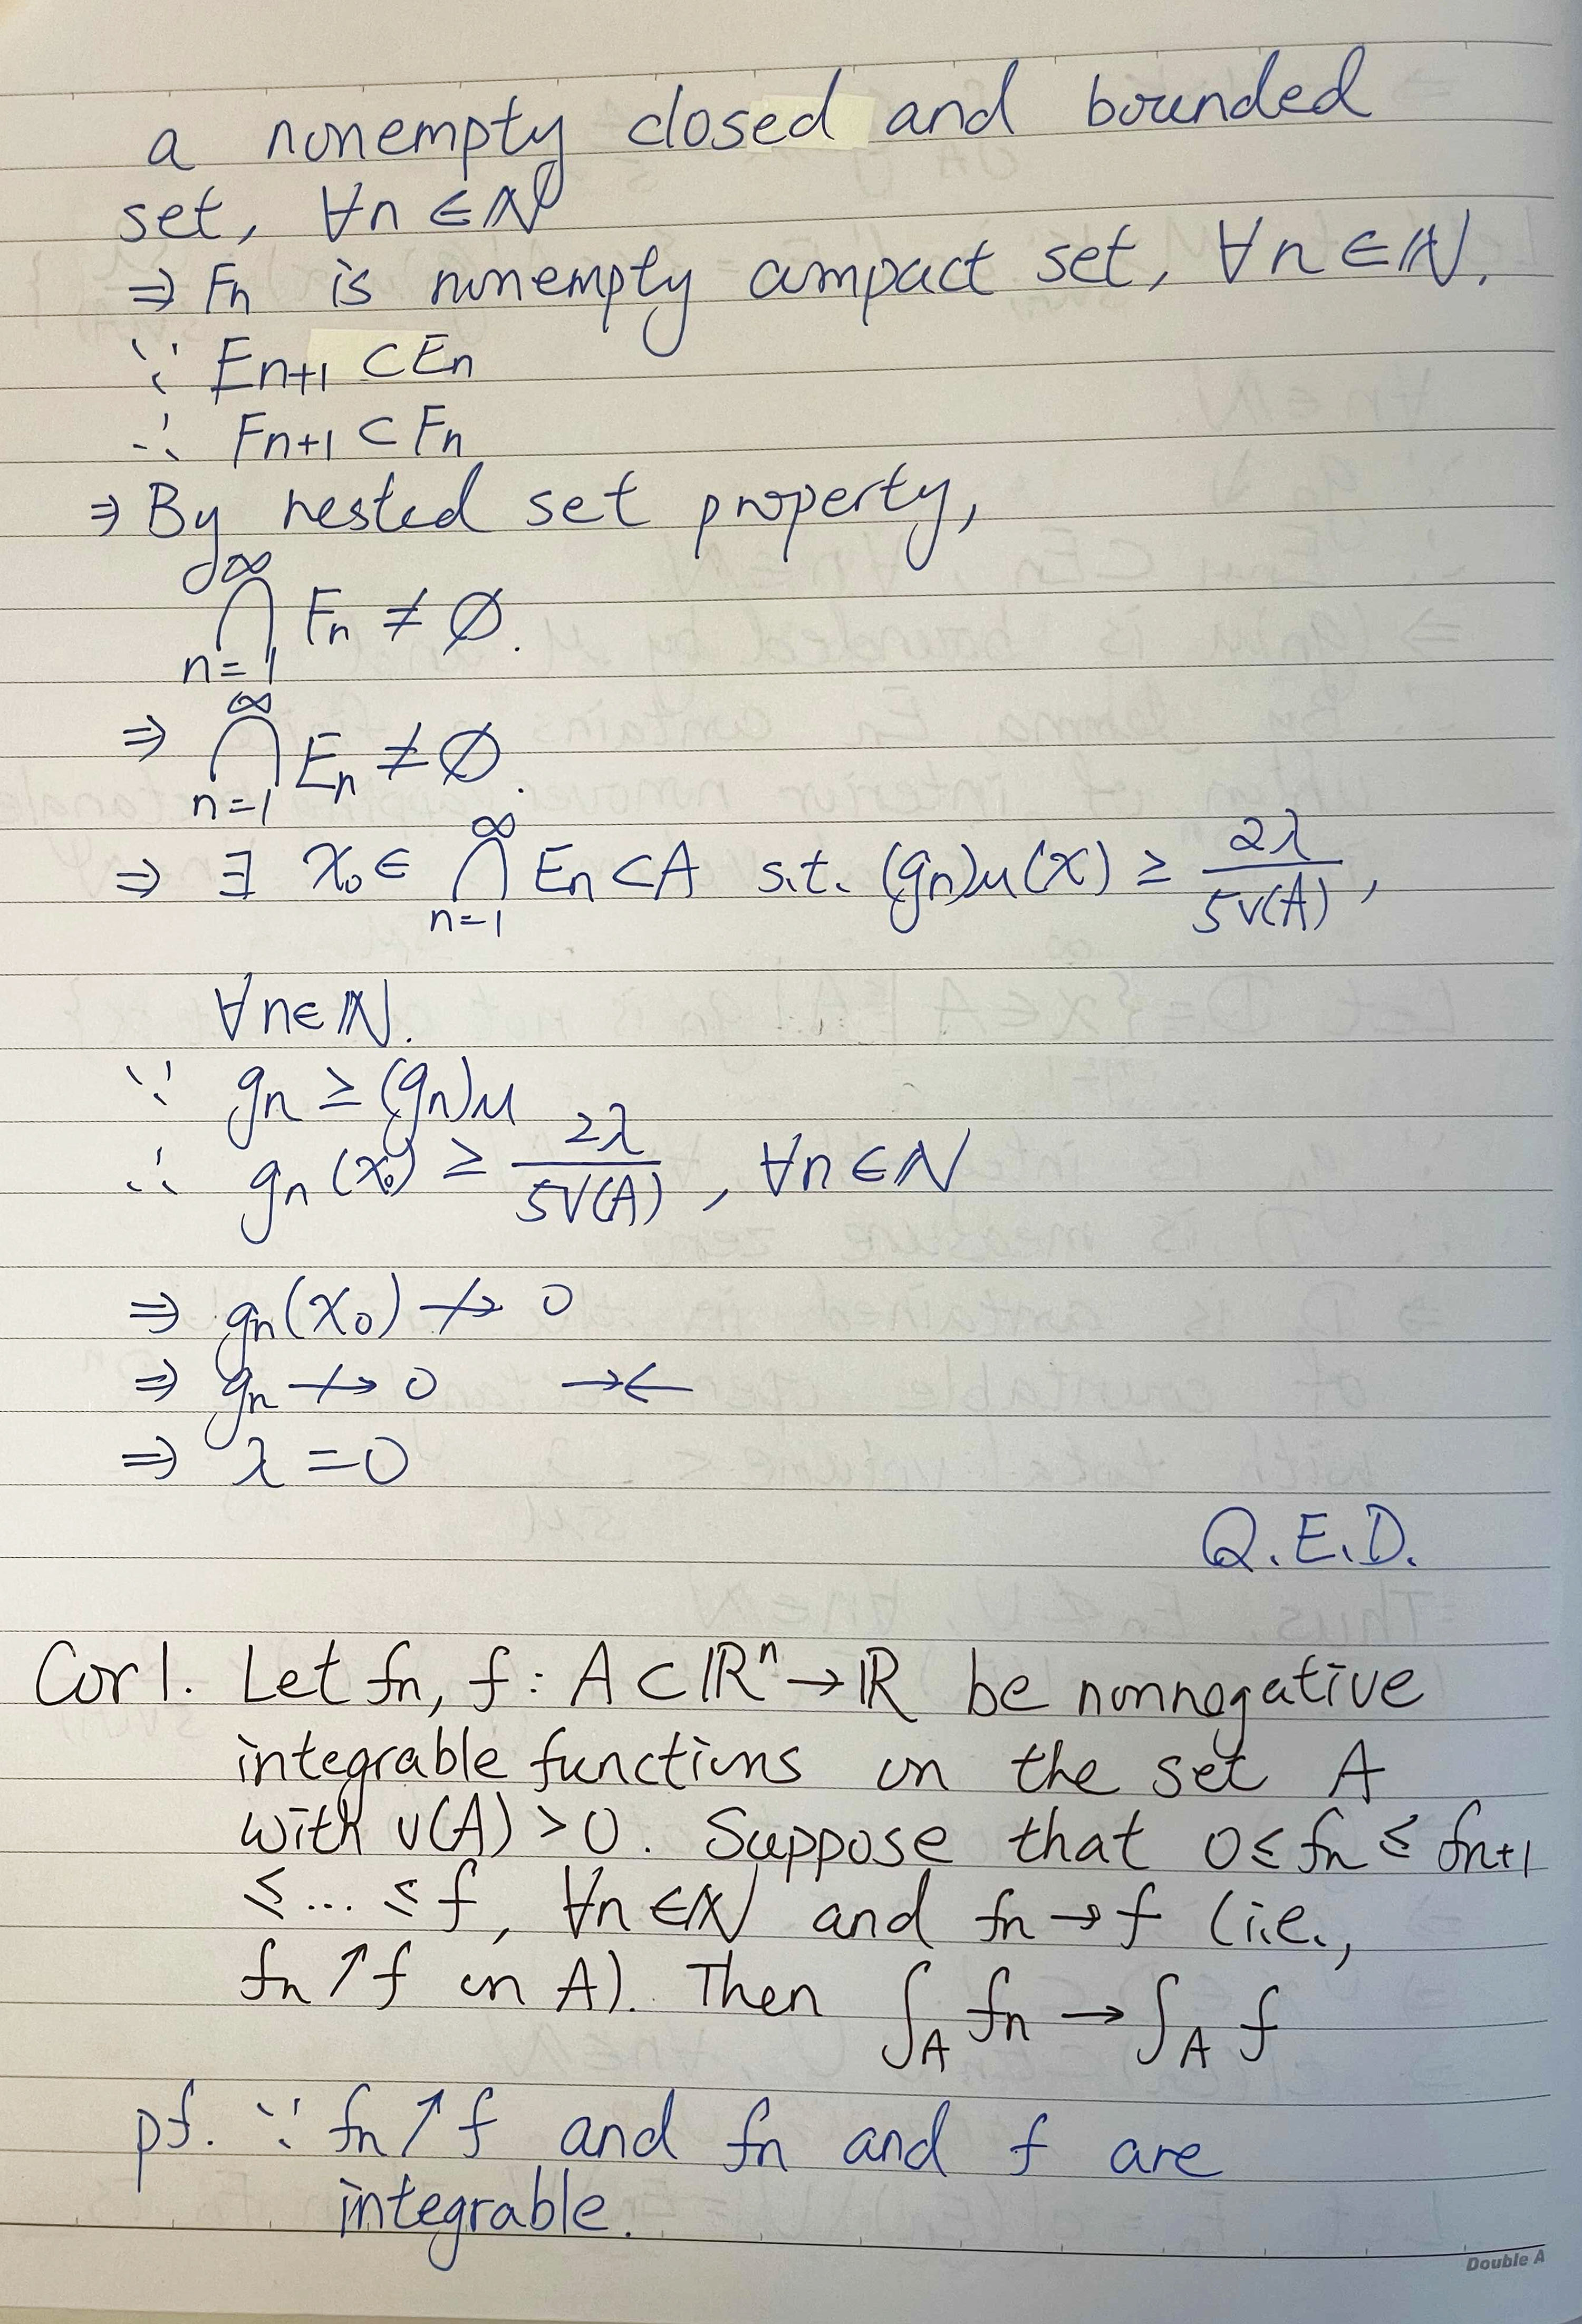 a nonempty closed and bounded
set, ∀n ∈ ℕ
⇒ Fn is nonempty compact set, ∀n ∈ ℕ.
∵ En+1 ⊂ En
∴ Fn+1 ⊂ Fn
⇒ By nested set property,
∞
∩ Fn ≠ ∅.
n=1
∞
⇒ ∩ En ≠ ∅.
n=1
⇒ ∃ x₀ ∈ ∩_{n=1}^{∞} En ⊂ A s.t. (gn)_M(x) ≥ 2λ/5v(A),
∀n∈ℕ.
∵ gn ≥ (gn)_M
∴ gn(x₀) ≥ 2λ/5V(A), ∀n ∈ ℕ
⇒ gn(x₀) ↛ 0
⇒ gn ↛ 0 →←
⇒ λ = 0
Q.E.D.
Cor 1. Let fn, f : A ⊂ ℝⁿ → ℝ be nonnegative
integrable functions on the set A
with v(A) > 0. Suppose that 0 ≤ fn ≤ fn+1
≤ ... ≤ f, ∀n ∈ ℕ and fn → f (i.e.,
fn ↑ f on A). Then ∫_A fn → ∫_A f
pf. ∵ fn ↑ f and fn and f are
integrable.
Double A